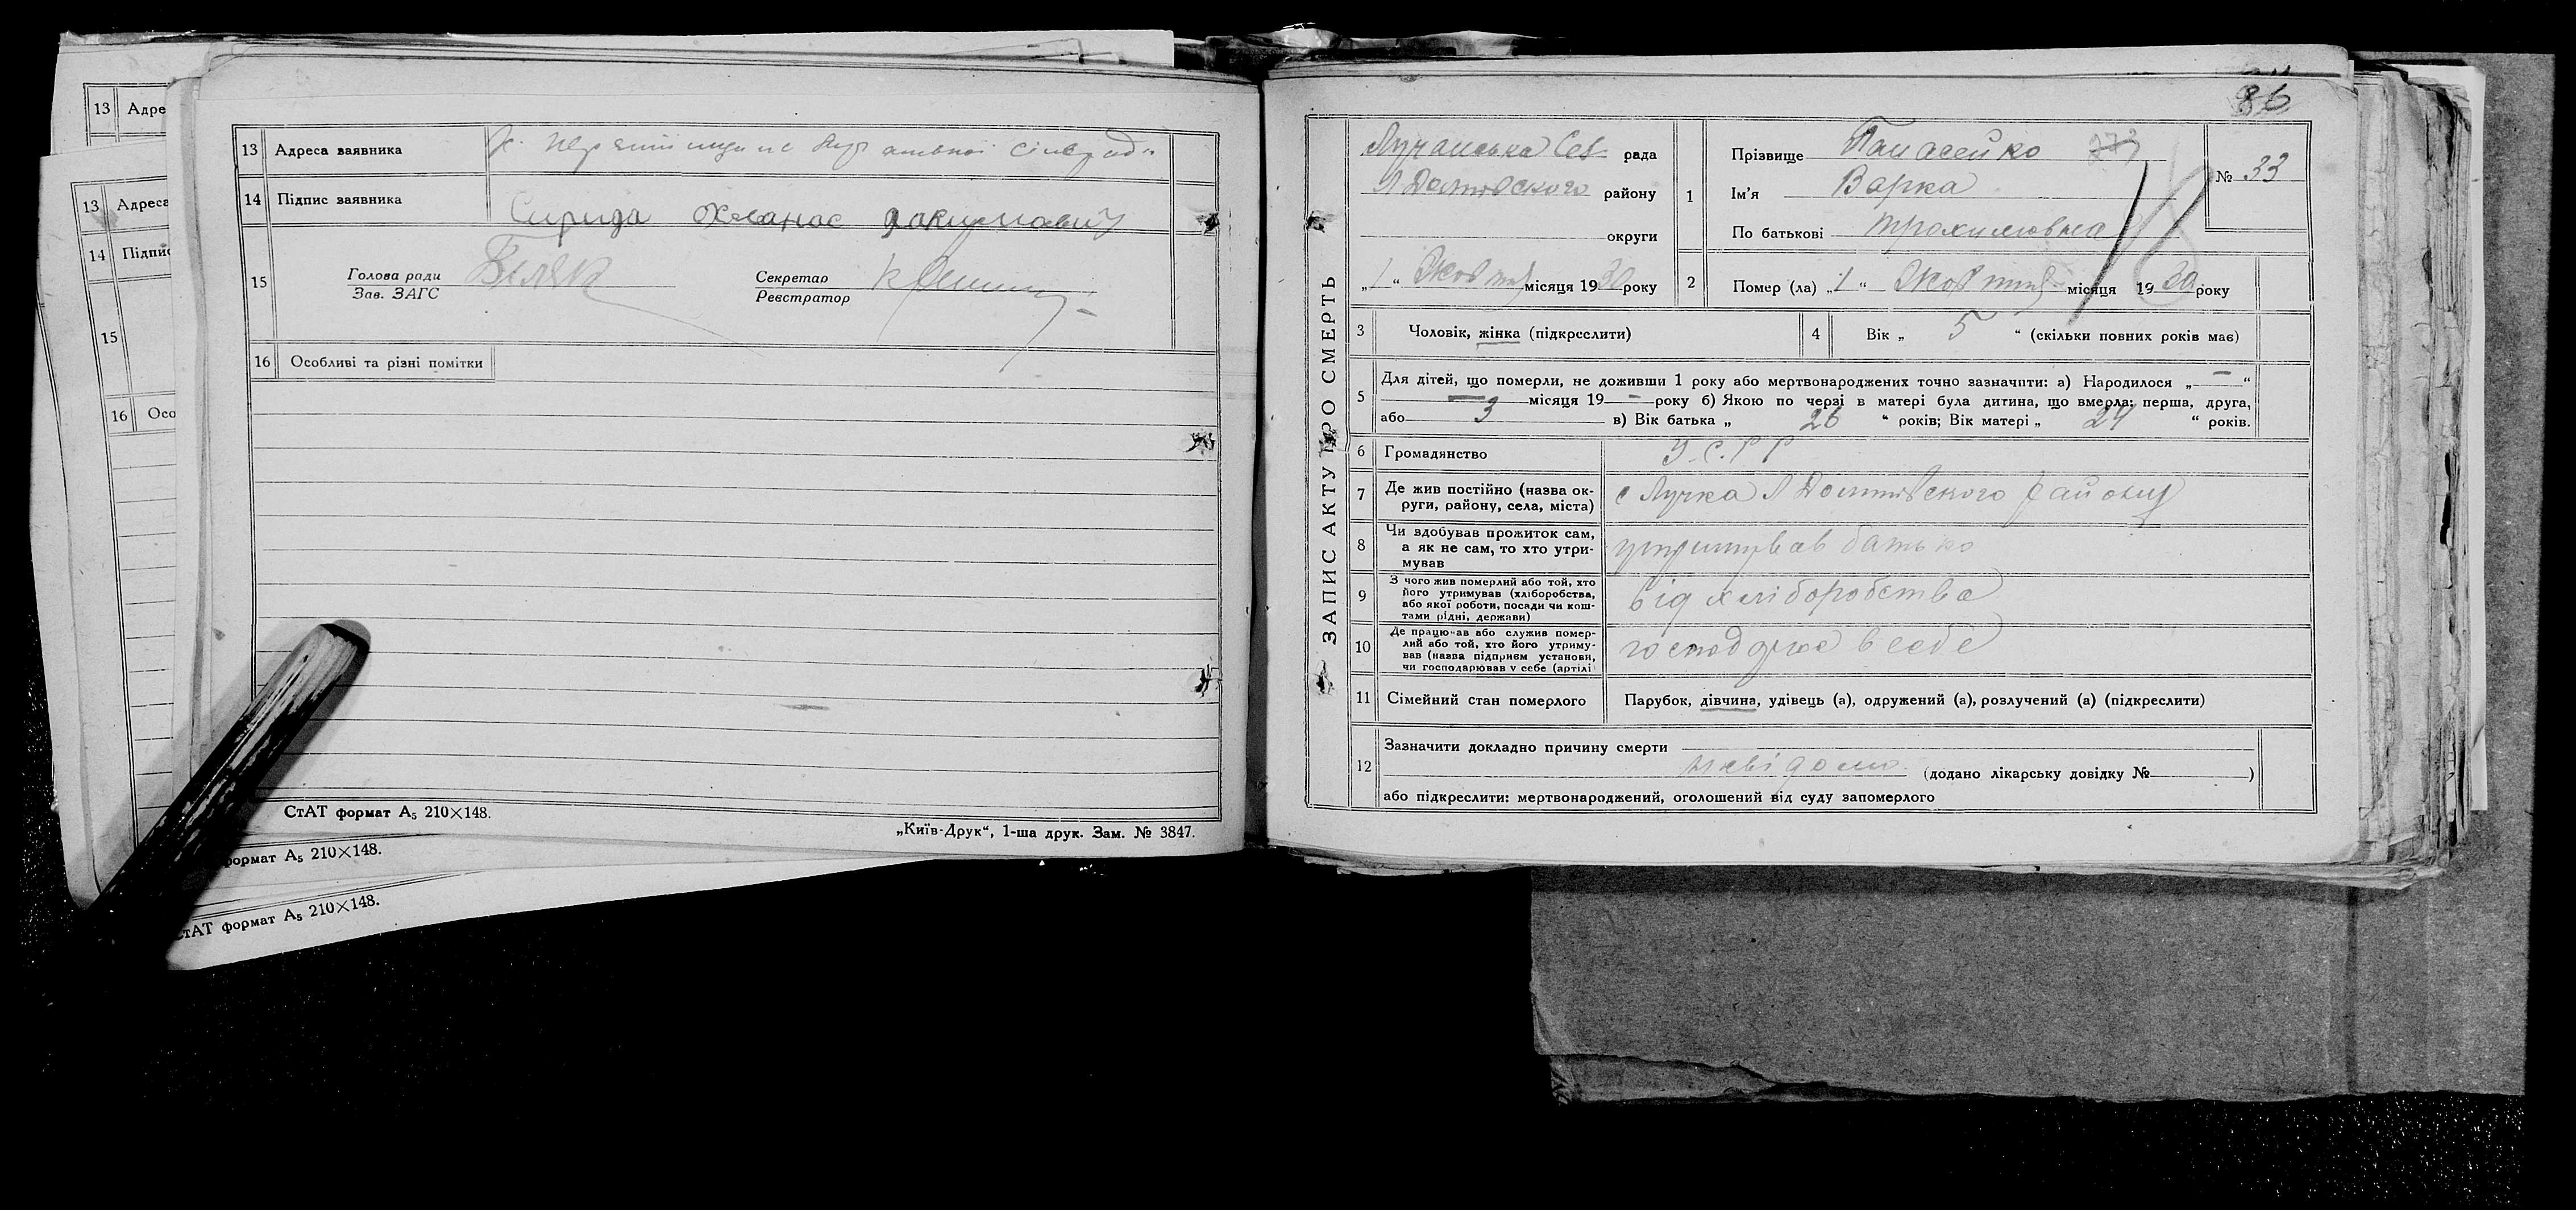 13 Адре
13 Адреса
14 Підпис
15
16 Осо
формат А₅ 210×148.
СтАТ формат А₅ 210×148.
13 Адреса заявника
14 Підпис заявника
Сирида Опанас Якимович
15 Голова ради Біляк Секретар
Зав. ЗАГС Реєстратор
16 Особливі та різні помітки
СтАТ формат А₅ 210×148.
„Київ-Друк“, 1-ша друк. Зам. № 3847.
86
ЗАПИС АКТУ ПРО СМЕРТЬ
Лучанська рада
району
округи
„1“ Жовтня місяця 1930 року
1 Прізвище Панасейко
Ім'я Варка
По батькові Трохимовна
№ 33
2 Помер (ла) „1“ Жовтня місяця 1930 року
3 Чоловік, жінка (підкреслити)
4 Вік „ 5 “ (скільки повних років має)
5 Для дітей, що померли, не доживши 1 року або мертвонароджених точно зазначити: а) Народилося „—“
— місяця 19 — року б) Якою по черзі в матері була дитина, що вмерла: перша, друга,
або 3 в) Вік батька „ 26 “ років; Вік матері „ 24 “ років.
6 Громадянство У.С.Р.Р
7 Де жив постійно (назва ок-
руги, району, села, міста)
с Лучка Л Долтовского району
8 Чи здобував прожиток сам,
а як не сам, то хто утри-
мував
утримував батько
9 З чого жив померлий або той, хто
його утримував (хліборобства,
або якої роботи, посади чи кош-
тами рідні, держави)
від хліборобства
10 Де працював або служив помер-
лий або той, хто його утриму-
вав (назва підприєм установи,
чи господарював у себе (артілі
господарює в себе
11 Сімейний стан померлого Парубок, дівчина, удівець (а), одружений (а), розлучений (а) (підкреслити)
12 Зазначити докладно причину смерти
невідомо (додано лікарську довідку № )
або підкреслити: мертвонароджений, оголошений від суду запомерлого